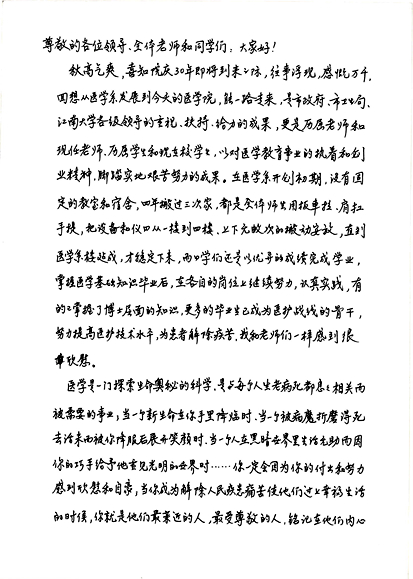 尊敬的各位领导、全体老师和同学们：大家好！
秋高气爽，喜知院庆30年即将到来之际，往事浮现，感慨万千，
回想从医学系发展到今天的医学院，能一路走来，是市政府、市卫生局、
江南大学各级领导的重视、扶持、给力的成果，更是历届老师和
现任老师、历届学生和现在校学生，以对医学教育事业的执着和创
业精神，脚踏实地艰苦努力的成果。在医学系开创初期，没有固
定的教室和宿舍，四年搬过三次家，都是全体师生用板车拉、肩扛
手提，把设备和仪器从一楼到四楼、上下无数次的搬动安放，直到
医学系楼造成，才稳定下来，而同学们还是以优异的成绩完成学业，
掌握医学基础知识毕业后，在各自的岗位上继续努力，认真实践，有
的已掌握了博士层面的知识，更多的毕业生已成为医护战线的骨干，
努力提高医护技术水平，为患者解除疾苦，我和老师们一样感到很
欣慰。
医学是一门探索生命奥秘的科学，是与每个人生老病死都息息相关而
被需要的事业；当一个新生命在你手里降临时、当一个被病魔折磨得死
去活来而被你降服后展开笑颜时、当一个人在黑暗世界里生活无助而因
你的巧手给予他重见光明的世界时……你一定会因为你的付出和努力
感到欣慰和自豪，当你成为解除人民疾患痛苦使他们过上幸福生活
的时候，你就是他们最亲近的人，最受尊敬的人，铭记在他们内心